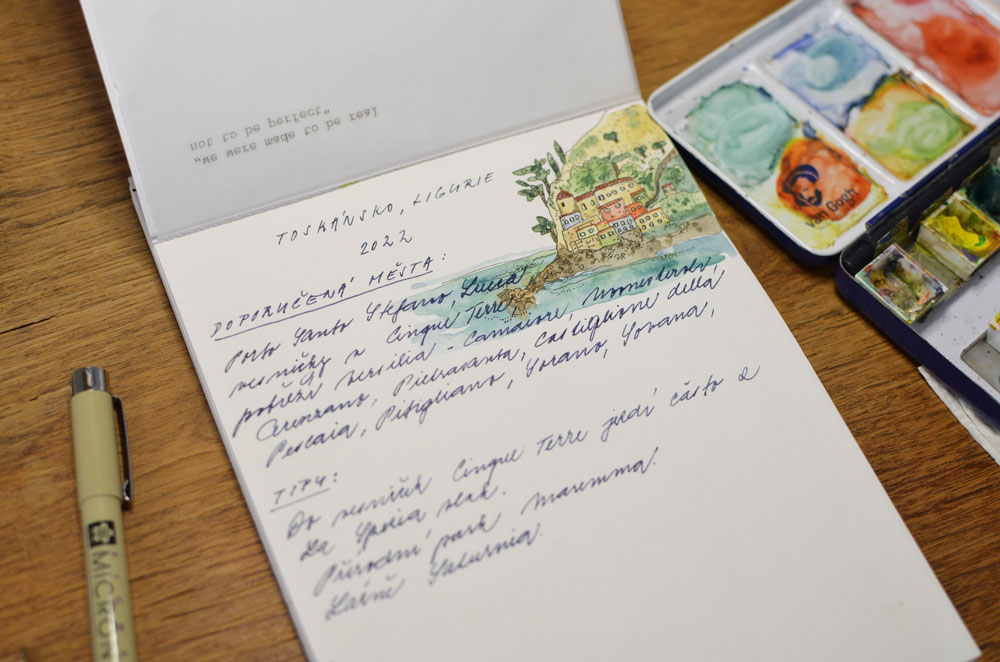 „we were made to be real
not to be perfect“
TOSKÁNSKO, LIGURIE
2022
DOPORUČENÁ MĚSTA:
Porto Santo Stefano, Lucca
vesničky v Cinque Terre
pobřeží Versilia - Camaiore,
Cerenzano, Pietrasanta, Castiglione della
Pescaia, Pitigliano, Sorano, Sovana,
TIPY:
Do vesniček Cinque Terre jezdí často z
La Spezia vlak.
Přírodní park Maremma.
Lázně Saturnia.
MICRON
Gogh